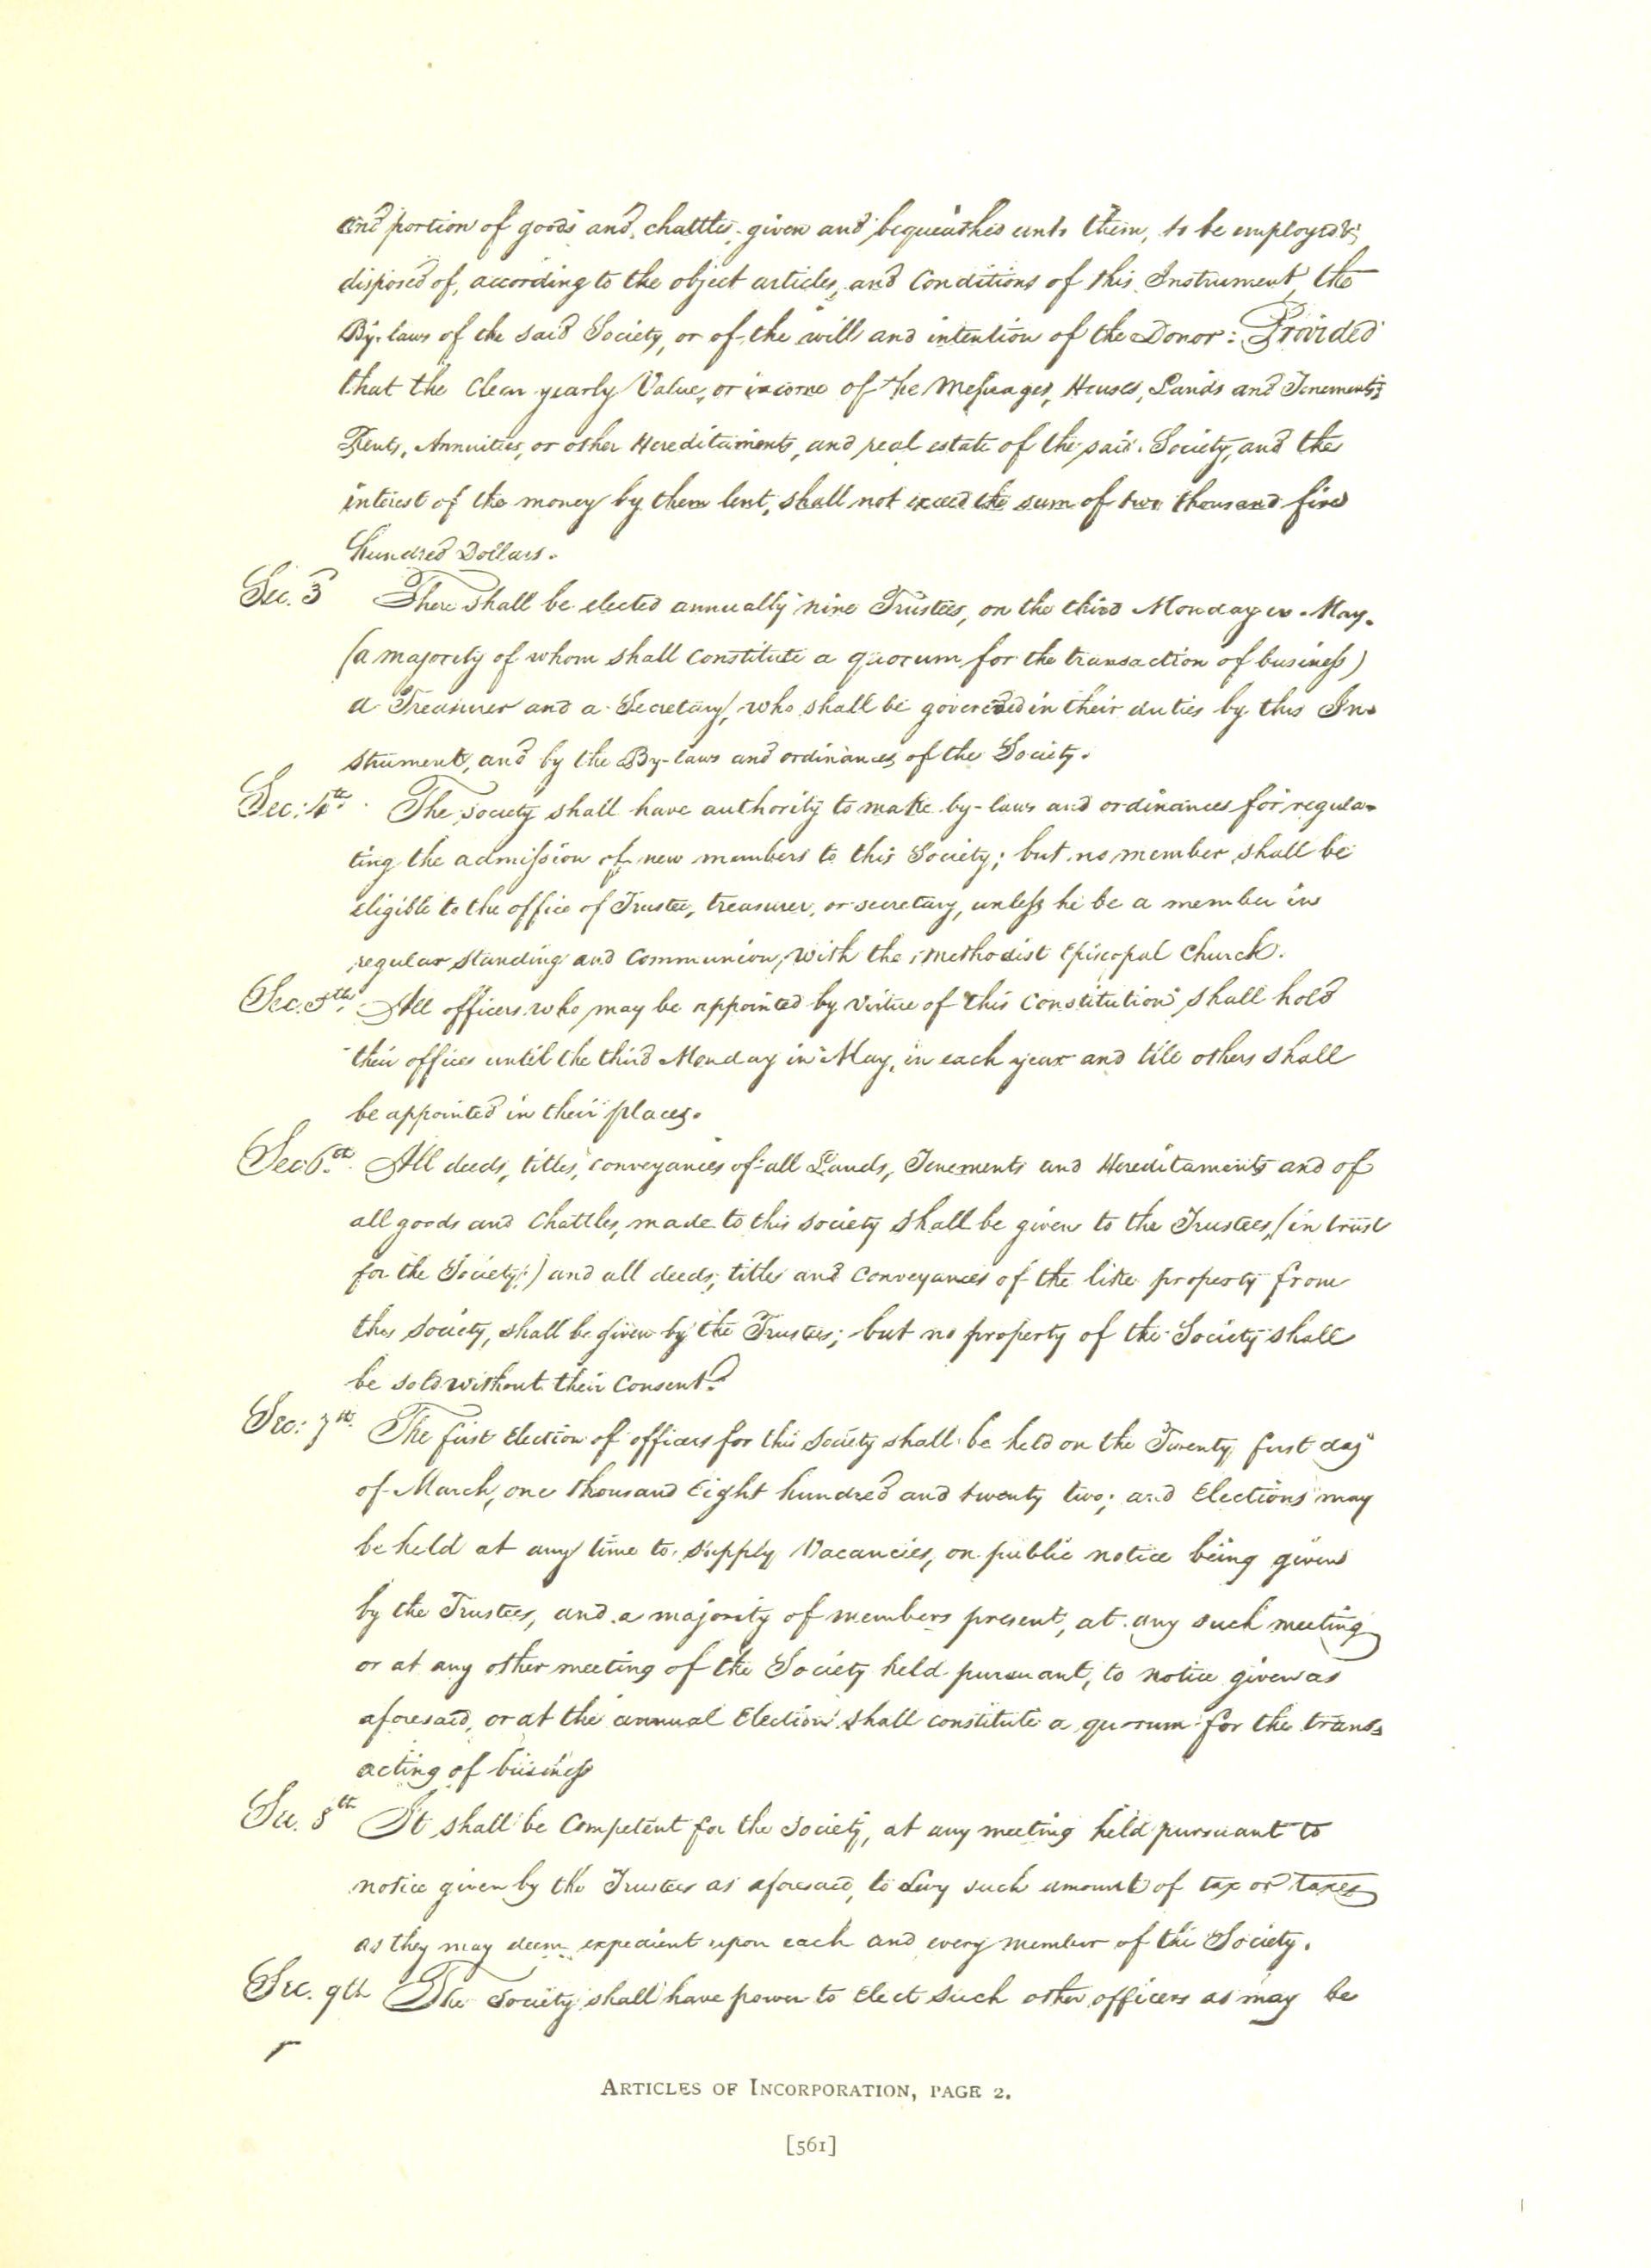 and portion of goods and chattles, given and bequeathed unto them, to be employed &
disposed of, according to the object articles, and Conditions of this Instrument, the
By-laws of the said Society, or of the will and intention of the Donor: Provided
that the Clear yearly Value, or income of the Meſsuages, Houses, Lands and Tenements,
Rents, Annuities, or other Hereditaments, and real estate of the said Society, and the
interest of the money by them lent, shall not exceed the sum of two thousand five
hundred Dollars.
Sec. 3 There shall be elected annually nine Trustees, on the third Monday in May.
(a majority of whom shall Constitute a quorum for the transaction of busineſs)
a Treasurer and a Secretary, who shall be governed in their duties by this In-
strument, and by the By-laws and ordinances of the Society.
Sec: 4th. The society shall have authority to make by-laws and ordinances for regula-
ting the admiſsion of new members to this Society; but no member shall be
eligible to the office of Trustee, treasurer, or secretary, unleſs he be a member in
regular standing and Communion, with the Methodist Episcopal Church.
Sec. 5th. All officers who may be appointed by virtue of this Constitution shall hold
their offices until the third Monday in May, in each year and till others shall
be appointed in their places.
Sec 6th. All deeds, titles, conveyances of all Lands, Tenements and Hereditaments and of
all goods and Chattles, made to this society shall be given to the Trustees, (in trust
for the Society;) and all deeds, titles and Conveyances of the like property from
the society, shall be given by the Trustees; but no property of the Society shall
be sold without their Consent.
Sec: 7th. The first Election of officers for this society shall be held on the Twenty first day
of March, one thousand Eight hundred and twenty two; and Elections may
be held at any time to supply Vacancies, on public notice being given
by the Trustees, and a majority of members present, at any such meeting
or at any other meeting of the Society held pursuant, to notice given as
aforesaid, or at the annual Election shall constitute a quorum for the trans-
acting of busineſs
Sec. 8th It shall be Competent for the Society, at any meeting held pursuant to
notice given by the Trustees as aforesaid, to Levy such amount of tax or taxes
as they may deem expedient upon each and every member of the Society.
Sec. 9th The Society shall have power to Elect such other officers as may be
ARTICLES OF INCORPORATION, PAGE 2.
[561]